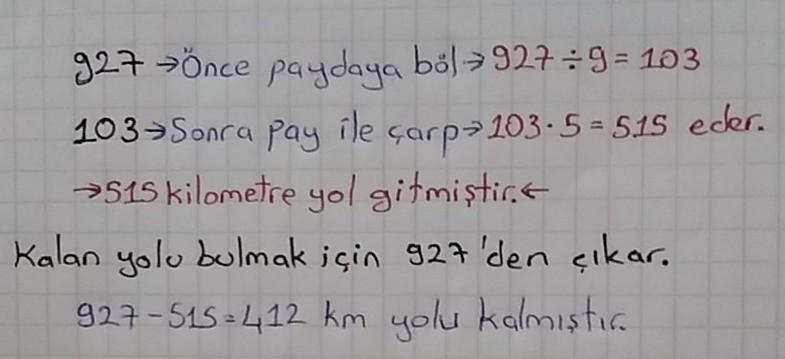 927 →Önce paydaya böl→ 927 ÷ 9 = 103
103→Sonra pay ile çarp→ 103 · 5 = 515 eder.
→515 kilometre yol gitmiştir.←
Kalan yolu bulmak için 927'den çıkar.
927 - 515 = 412 km yolu kalmıştır.